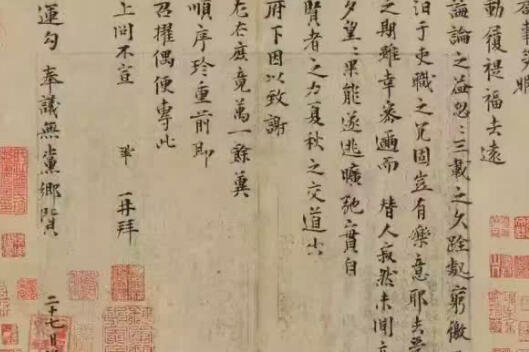 動履禔福去遠
誨論之益忽〻三載之久跧處窮徼
汩于吏職之冗固豈有樂意耶去受
之期雖幸密邇而 替人寂然未聞
夕望〻果能遂逃曠弛實自
賢者之力夏秋之交道出
府下因以致謝
左右庶竟萬一餘冀
順序珍重前即
召擢偶便專此
上問不宣 鞏 再拜
運勾 奉議無黨鄉賢 二十七日